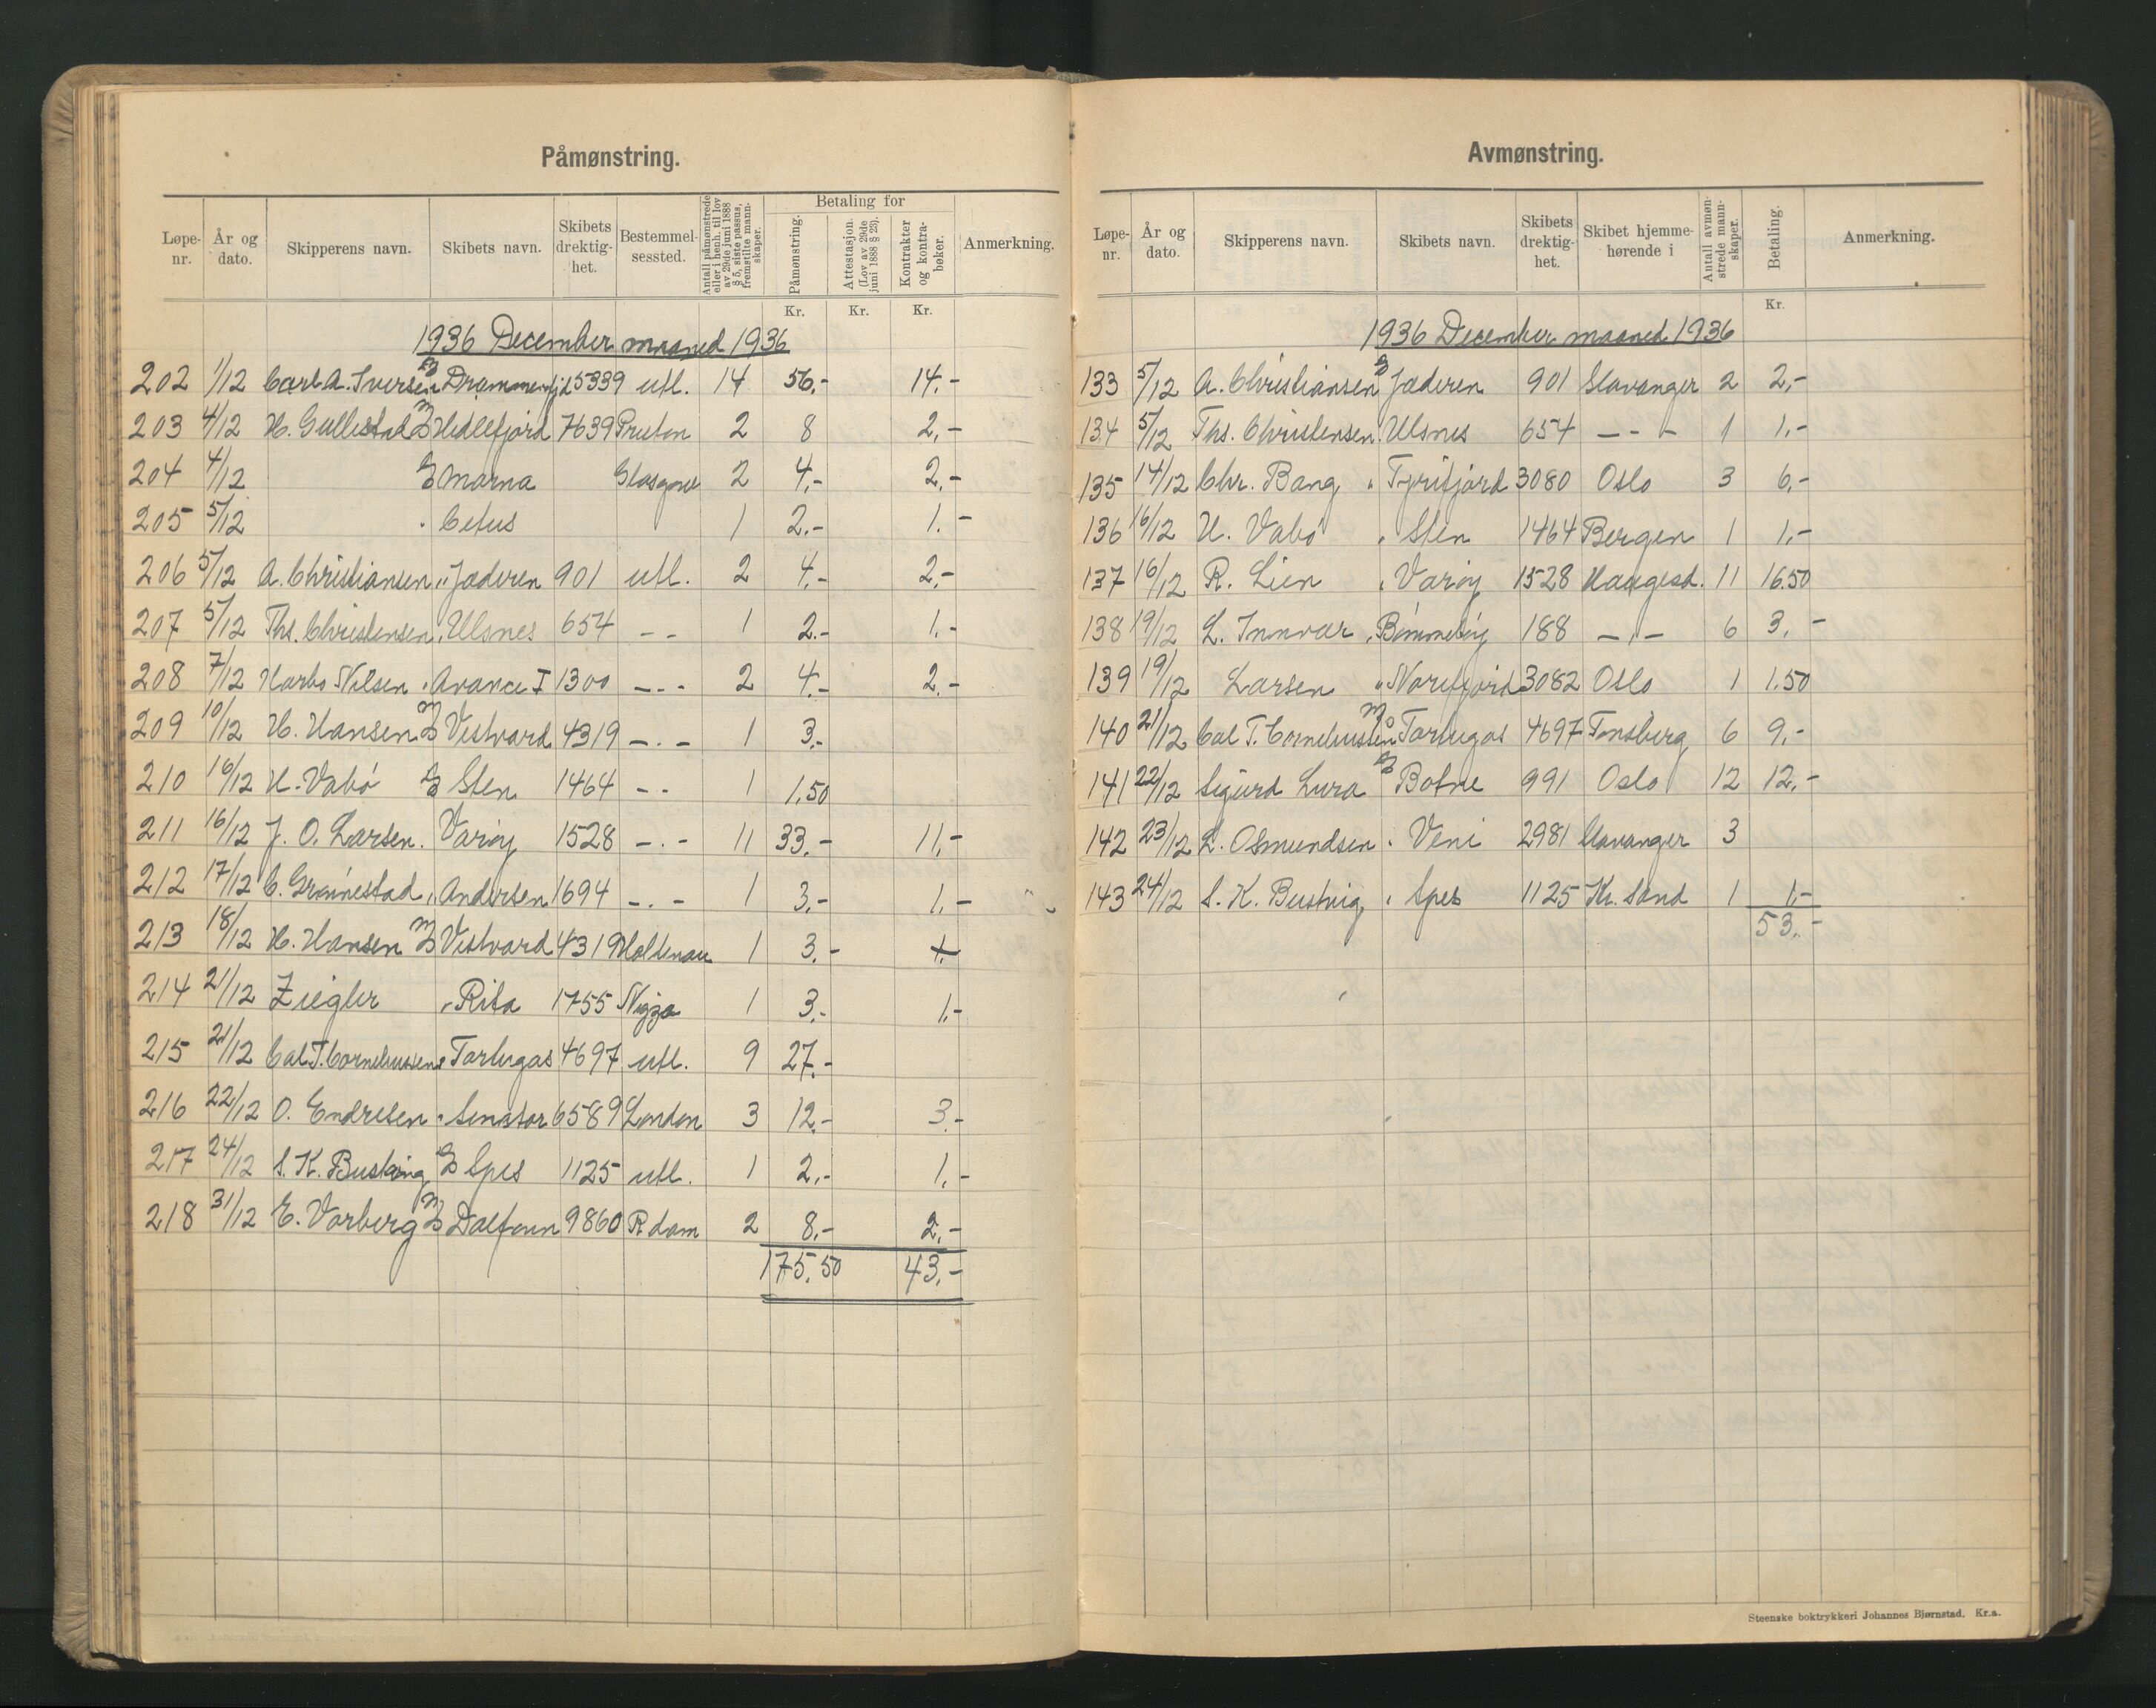 Påmønstring.
Løpe-nr. År og dato. Skipperens navn. Skibets navn. Skibets drektig-het. Bestemmel-sessted. Antall påmønstrede eller i henh. til lov av 29de juni 1888 § 5, siste passus, fremstilte mann-skaper. Betaling for Påmønstring. Attestasjon. (Lov av 29de juni 1888 § 23). Kontrakter og kontra-bøker. Anmerkning.
Kr. Kr. Kr.
1936 December maaned 1936
202 1/12 Carl A. Iversen D/S Drammensfj. 5339 utl. 14 56,- 14.-
203 4/12 H. Gullestad M/S Hidlefjord 7639 Preston 2 8 2,-
204 4/12 D/S Marna Glasgow 2 4,- 2,-
205 5/12 " Cetus 1 2.- 1.-
206 5/12 A. Christiansen " Jæderen 901 utl. 2 4,- 2,-
207 5/12 Ths. Christensen " Ulsnes 654 -- 1 2.- 1.-
208 7/12 Harbo Nilsen " Avance I 1300 -.- 2 4,- 2.-
209 10/12 H. Hansen M/S Vestvard 4319 -.- 1 3.-
210 16/12 H. Vabø D/S Sten 1464 -- 1 1.50
211 16/12 J. O. Larsen " Varøy 1528 -.- 11 33.- 11,-
212 17/12 C. Grønnestad " Andersen 1694 -.- 1 3,- 1,-
213 18/12 H. Hansen M/S Vestvard 4319 Holtenau 1 3,- 1.
214 21/12 Ziegler " Rita 1755 Nizza 1 3,- 1.-
215 21/12 Cal T. Corneliussen " Tortugas 4697 utl. 9 27.-
216 22/12 O. Endresen " Senator 6589 London 3 12.- 3.-
217 24/12 S. K. Bustvig D/S Spes 1125 utl. 1 2,- 1,-
218 31/12 E. Vorberg M/S Dalfonn 9860 R dam 2 8,- 2,-
175.50 43.-
Avmønstring.
Løpe-nr. År og dato. Skipperens navn. Skibets navn. Skibets drektig-het. Skibet hjemme-hørende i Antall avmøn-strede mann-skaper. Betaling. Anmerkning.
Kr.
1936 December maaned 1936
133 5/12 A. Christiansen D/S Jæderen 901 Stavanger 2 2,-
134 5/12 Ths. Christensen " Ulsnes 654 -- - 1 1.-
135 14/12 Chr. Bang " Tyrifjord 3080 Oslo 3 6,-
136 16/12 H. Vabø " Sten 1464 Bergen 1 1,-
137 16/12 R. Lien " Varøy 1528 Haugesd. 11 16.50
138 19/12 L. Innvær " Bømmeløy 188 -"- 6 3,-
139 19/12 Larsen " Norefjord 3082 Oslo 1 1.50
140 21/12 Cal T. Corneliussen M/S Tortugas 4697 Tønsberg 6 9,-
141 22/12 Sigurd Lura D/S Botne 991 Oslo 12 12,-
142 23/12 L. Osmundsen " Veni 2981 Stavanger 3
143 24/12 S. K. Bustvig " Spes 1125 Kr. Sand 1 1,-
53.-
Steenske boktrykkeri Johannes Bjørnstad. Kr.a.